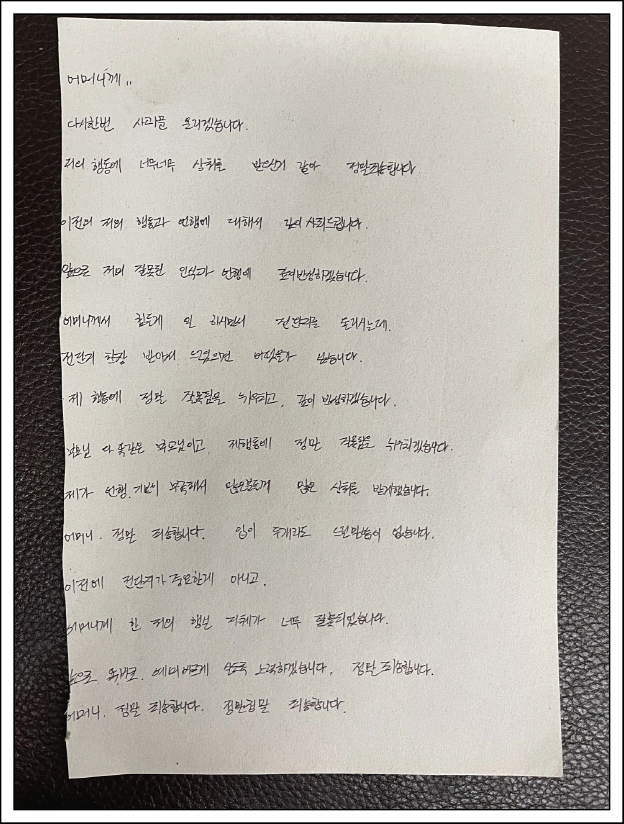 어머니께..
다시한번 사과를 올리겠습니다.
저의 행동에 너무너무 상처를 받았기 같아 정말죄송합니다
이전의 저의 행동과 언행에 대해서 깊이 사죄드립니다.
앞으로 저의 잘못된 인식과 언행에 반성하겠습니다.
어머니께서 힘들게 일 하시면서 전단지를 돌리시는데.
전단지 한장 받아서 드렸으면 싶습니다.
제 행동에 정말 잘못됨을 뉘우치고, 깊이 반성하겠습니다.
부모님 다 똑같은 부모님이고, 제행동에 정말 잘못됨을 뉘우치겠습니다.
제가 언행, 기본이 부족해서 많은분들께 많은 상처를 받게했습니다.
어머니. 정말 죄송합니다. 입이 두개라도 드릴말씀이 없습니다.
이전에 전단지가 중요한게 아니고.
어머니께 한 저의 행실 자체가 너무 잘못되었습니다.
앞으로 똑바로. 예의바르게 살도록 노력하겠습니다. 정말 죄송합니다.
어머니. 정말 죄송합니다. 정말정말 죄송합니다.